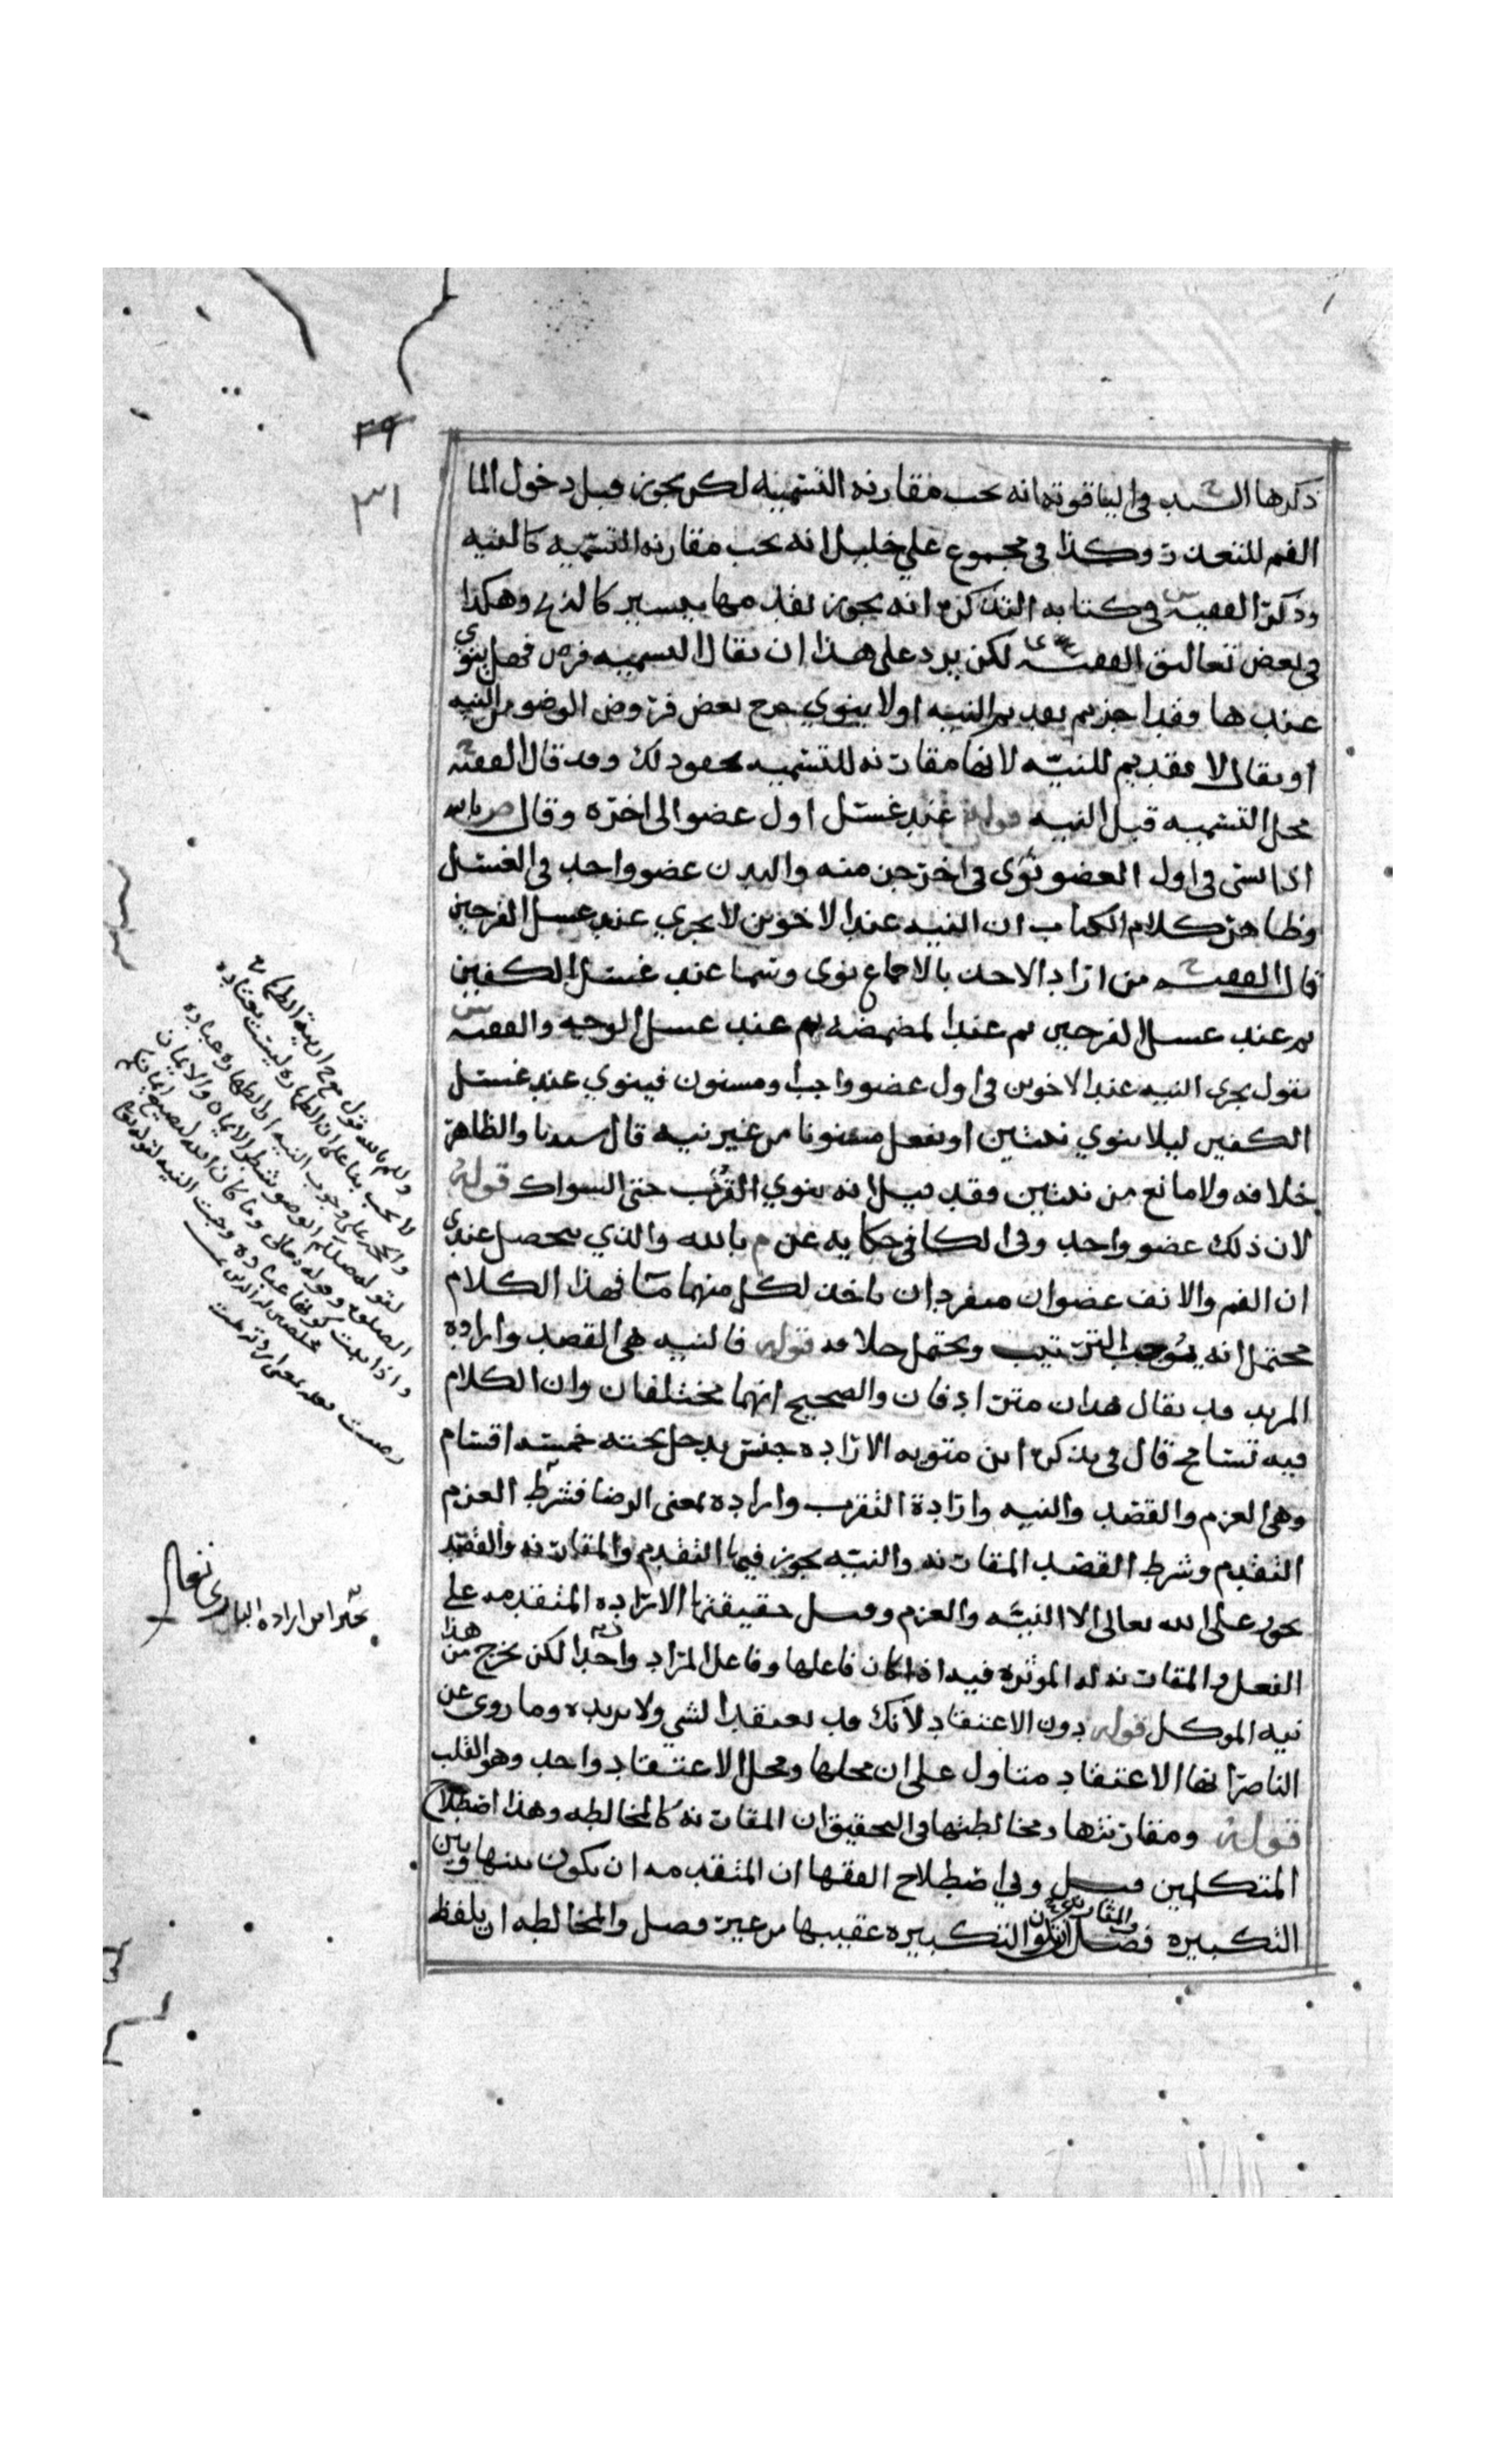 ٢٩
٣١
ذكرها السيد في الياقوته انه يجب مقارنه التسميه لكن يجوز قبل دخول الما
الفم للتعذر وكذا في مجموع علي خليل انه يجب مقارنه التسميه كالنيه
وذكر الفقيه س في كتابه التذكرة انه يجوز تقديمها بيسير كالنيه وهكذا
في بعض تعاليق الفقيه لكن يرد على هذا ان يقال التسميه فرض فهل ينوي
عندها فقد اجزتم تقديم النيه اولا ينوي خرج بعض فروض الوضو من النيه
او يقال لا تقديم للنيه لانها مقارنه للتسميه وقد قال الفقيه ح
محل التسميه قبل النيه قوله عند غسل اول عضو الى اخره وقال م بالله
اذا نسى في اول العضو نوى في اخر جز منه والبدن عضو واحد في الغسل
وظاهر كلام الكتاب ان النيه عند الاخوين لا تجزي عند غسل الفرجين
قال الفقيه ح من اراد الاخذ بالاجماع نوى وسما عند غسل الكفين
ثم عند غسل الفرجين ثم عند المضمضه ثم عند غسل الوجه والفقيه س
يقول تجزي النيه عند الاخوين في اول عضو واجب او مسنون فينوي عند غسل
الكفين ليلا ينوي نيتين او يفعل مسنونا من غير نيه قال سيدنا والظاهر
خلافه ولا مانع من نيتين فقد قيل انه ينوي القرب حتى السواك قوله
لان ذلك عضو واحد وفي الكافي حكايه عن م بالله والذي يحصل عندي
ان الفم والانف عضوان منفردان ياخذ لكل منهما ما فهذا الكلام
محتمل انه يوجب الترتيب ويحتمل خلافه قوله فالنيه هي القصد واراده
المريد قد يقال هذان مترادفان والصحيح انهما مختلفان وان الكلام
فيه تسامح قال في تذكرة ابن متويه الاراده جنس يدخل تحته خمسه اقسام
وهي العزم والقصد والنيه وارادة التقرب واراده بمعنى الرضا فشرط العزم
التقدم وشرط القصد المقارنه والنيه يجوز فيها التقدم والمقارنه والقصد
يجوز على الله تعالى الا النيه والعزم وقيل حقيقتها الاراده المتقدمه على
الفعل والمقارنه له الموثره فيه اذا كان فاعلها وفاعل المراد واحدا لكن يخرج من هذا
نيه الموكل قوله دون الاعتقاد لانك قد تعتقد الشي ولا تريده وما روي عن
الناصر انها الاعتقاد متاول على ان محلها ومحل الاعتقاد واحد وهو القلب
قوله ومقارنتها ومخالطتها في التحقيق ان المقارنه كالمخالطه وهذا اصطلاح
المتكلمين قيل وفي اصطلاح الفقها ان المتقدمه ان يكون بينها وبين
التكبيره فصل والمقارنه ان تكون التكبيره عقيبها من غير فصل والمخالطه ان يلفظ
لا تجب بناء على ان الطهاره ليست بعباده
لقوله صلعم الوضو شطر الايمان والايمان
الصلوه وما كان الله ليضيع ايمانكم
واذا ثبت كونها عباده وجبت النيه لقوله تعالى
مخلصين له الدين
يحترز من اراده الباري تعالى